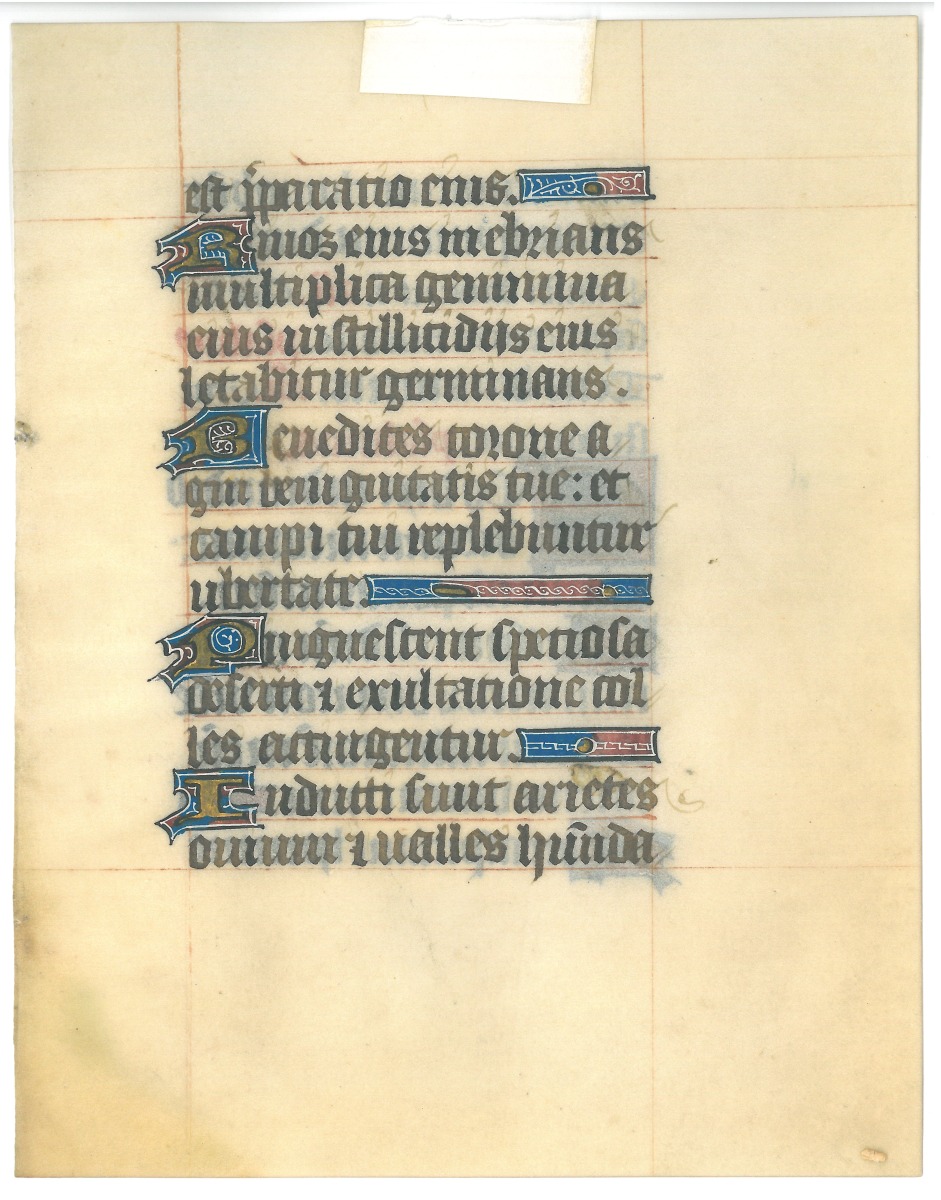 est p̄paratio eius.
Riuos eius inebrians
multiplica genimina
eius in stillicidijs eius
letabitur germinans.
Benedices corone a
gni benignitatis tue: et
campi tui replebuntur
ubertate.
Pinguescent speciosa
deserti ⁊ exultatione col
les accingentur.
Induti sunt arietes
ouium ⁊ ualles hūnda